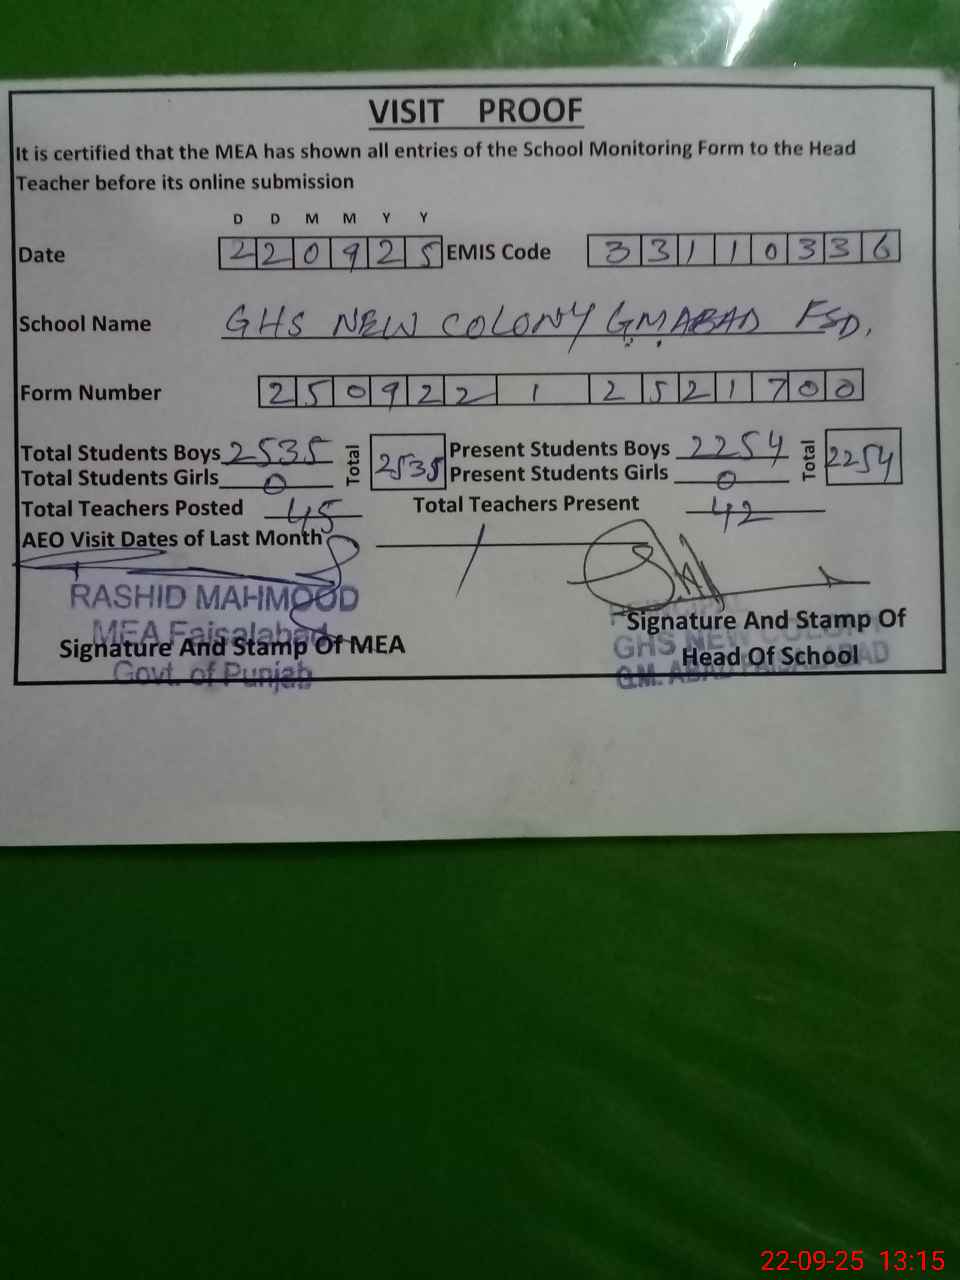 VISIT PROOF
It is certified that the MEA has shown all entries of the School Monitoring Form to the Head
Teacher before its online submission
D D M M Y Y
Date 220925 EMIS Code 33110336
School Name GHS NEW COLONY G.M.ABAD FSD.
Form Number 25092212521700
Total Students Boys 2535 Total 2535 Present Students Boys 2254 Total 2254
Total Students Girls 0 Present Students Girls 0
Total Teachers Posted 45 Total Teachers Present 42
AEO Visit Dates of Last Month /
RASHID MAHMOOD
MEA Faisalabad
Govt. of Punjab
Signature And Stamp Of MEA
PRINCIPAL
GHS NEW COLONY
G.M. ABAD FAISALABAD
Signature And Stamp Of
Head Of School
22-09-25 13:15